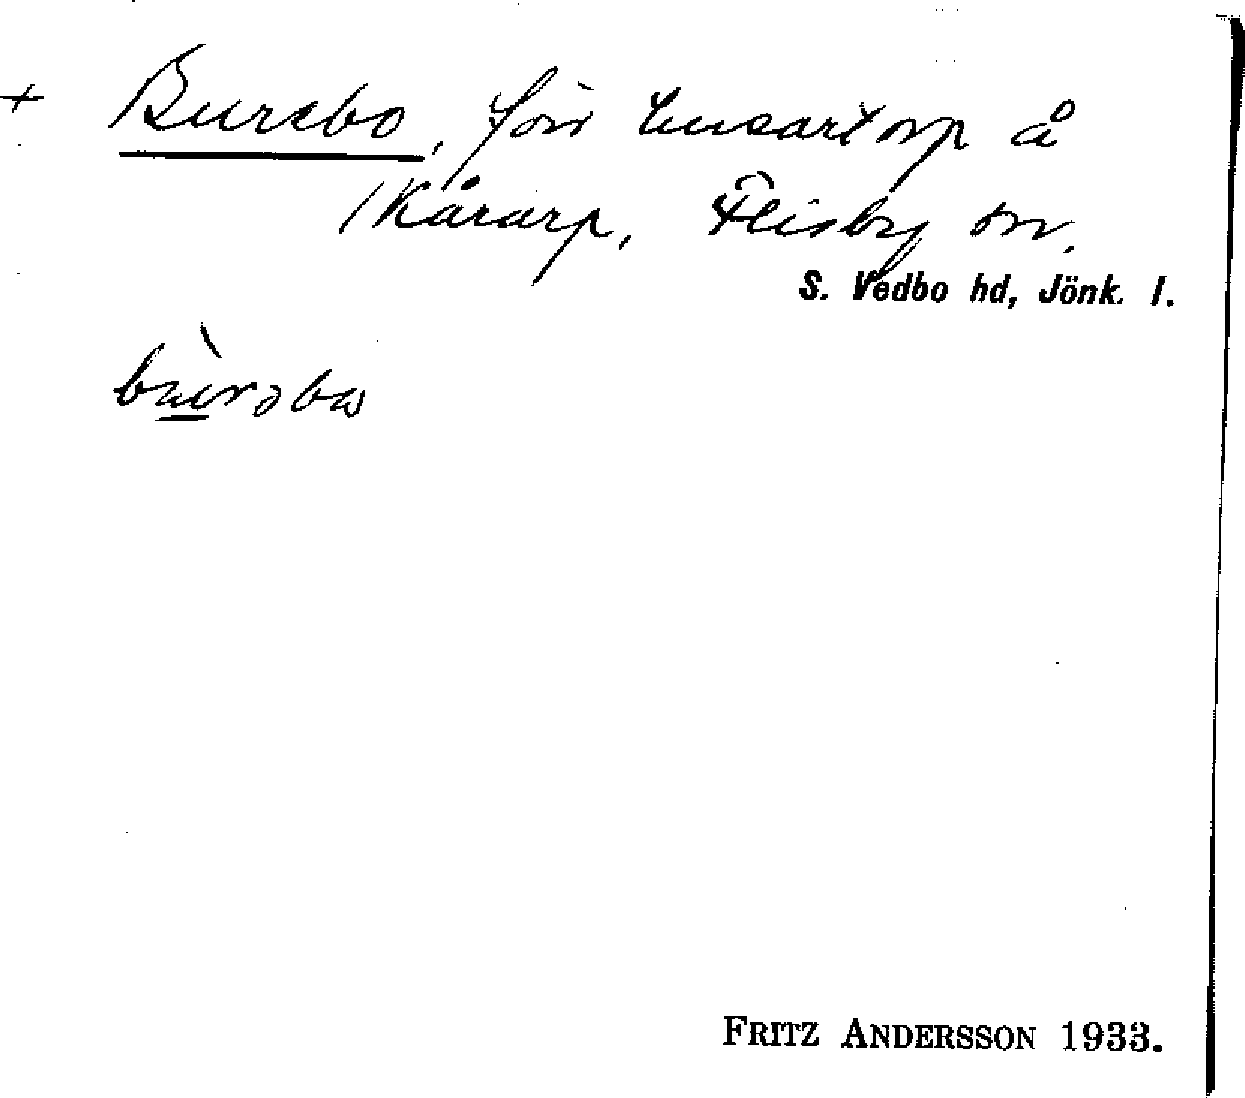 + Burebo, förr husartorp å
Kårarp, Flisby sn.
S. Vedbo hd, Jönk. l.
Fritz Andersson 1933.